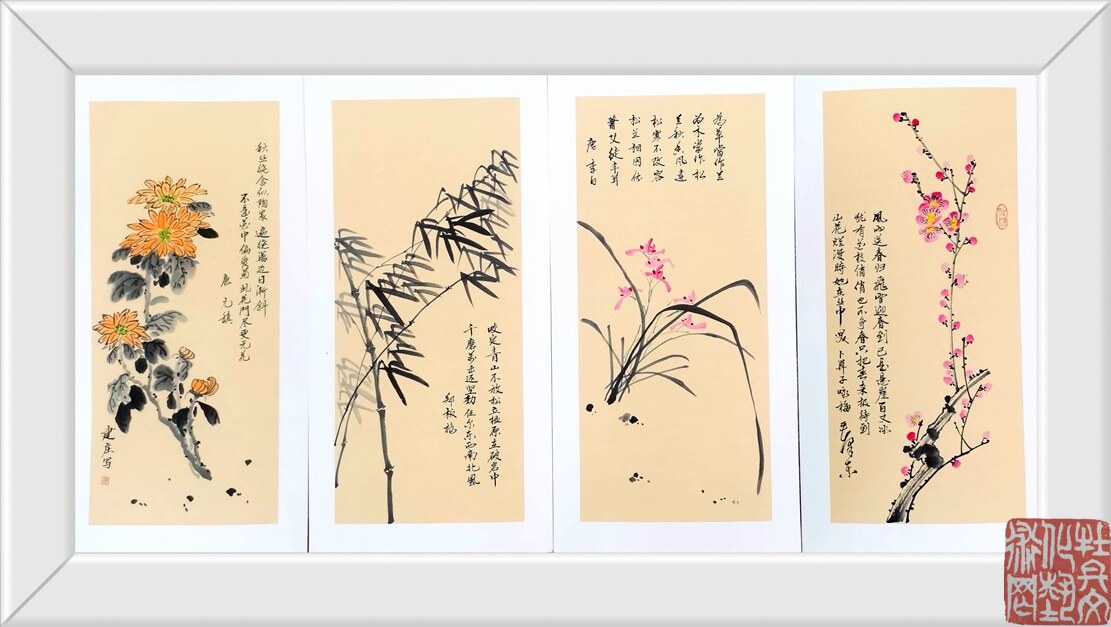 秋丛绕舍似陶家 遍绕篱边日渐斜
不是花中偏爱菊 此花開尽更无花
唐 元稹
建庄写
咬定青山不放松立根原在破岩中
千磨万击还坚劲任尔东西南北風
郑板橋
為草當作兰
为木當作松
兰秋香风遠
松寒不改容
松兰相因依
蕭艾徒丰茸
唐 李白
風雨送春归飛雪迎春到已是悬崖百丈冰
犹有花枝俏俏也不争春只把春来报待到
山花烂漫時她在丛中笑 卜算子咏梅 毛泽东
牡丹文化艺术网